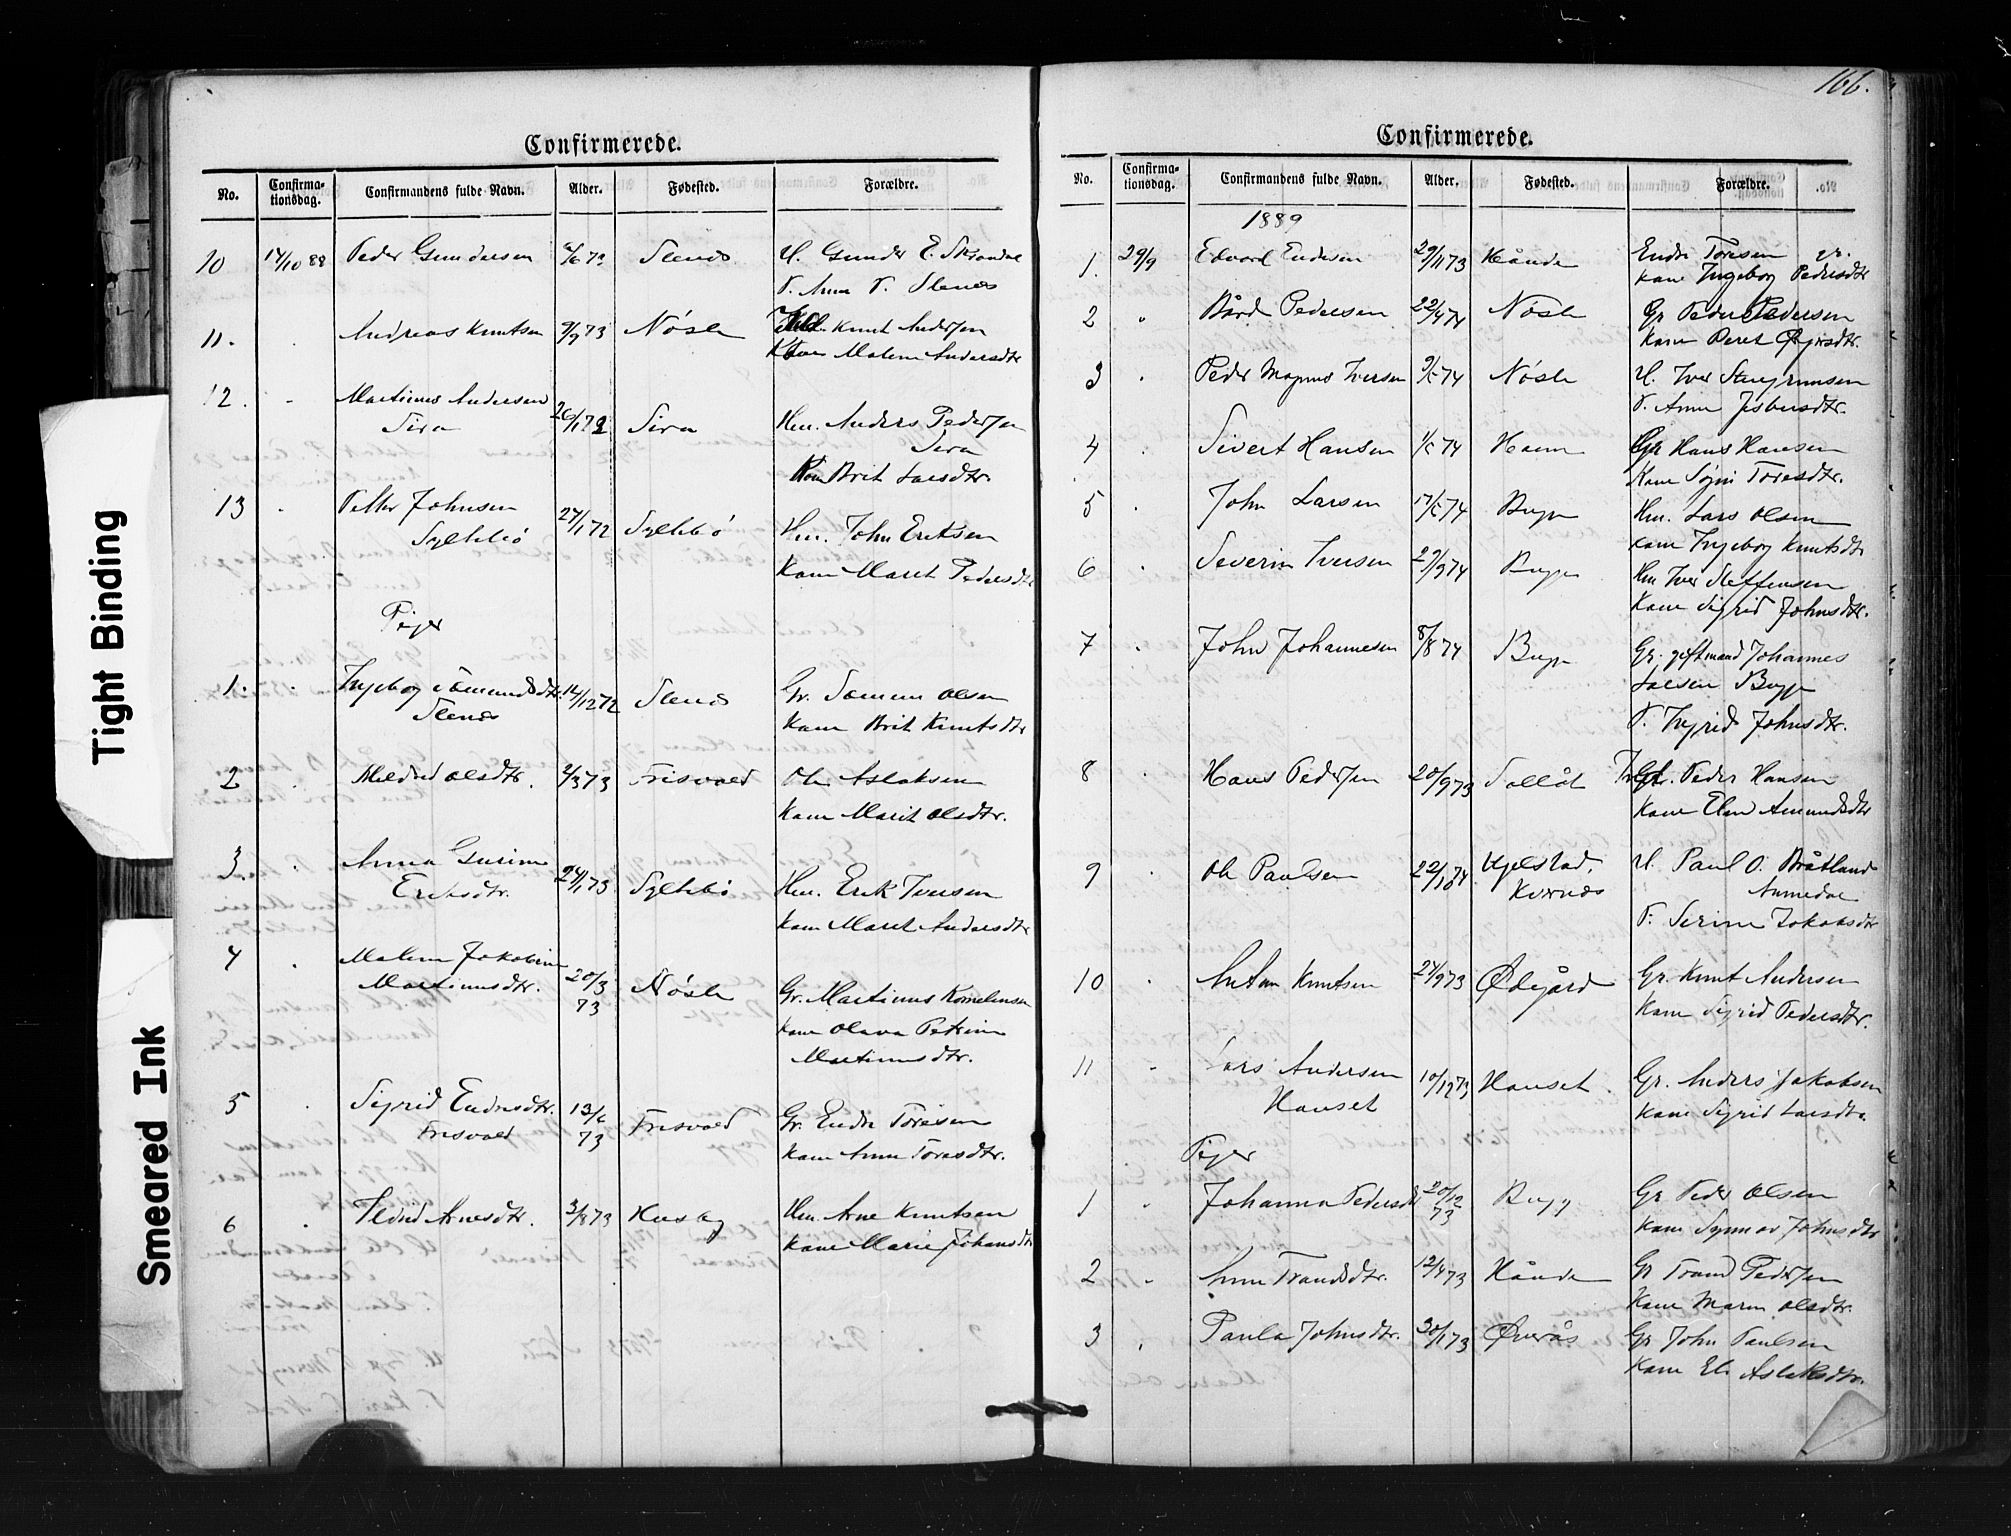 Tight Binding
Smeared Ink
Confirmerede.
No. Confirma-tionsdag. Confirmandens fulde Navn. Alder. Fødested. Forældre.
10 14/10 88 Peder Gundersen 6/6 73 Stenes U. Gunder E.
P. Anne P. Stenes
11. Andreas Knutsen 9/9 73 Nøsle Knut Andersen
Kone Malene Andersdtr
12. Martinus Andersen
Sira 26/1 72 Sira Hm. Anders Pedersen
Sira
Kone Brit Larsdtr.
13 Petter Johnsen
Syltebø 27/1 72 Syltebø Hm. John Eriksen
Kone Maret Pedersdtr
Piger
1. Ingeborg Sämundsdtr.
Stenes 14/12 72 Stenes Gr. Olsen
Kone Brit Knutsdtr
2 Mildrid Olsdtr. 2/3 73 Frisvold Ole Aslaksen
Kone Marit Olsdtr.
3. Anna Gurine
Eriksdtr. 24/1 73 Syltebø Hm. Erik Iversen
Kone Maret Andersdtr
4 Malene Jakobine
Martinusdtr. 20/3
73 Nøsle Gr. Martinus Kornelinsen
Kone Olava Petrine
Martinusdtr.
5 Sigrid Endresdtr.
Frisvold 13/6
73 Frisvold Gr. Endre Toresen
Kone Anne Toresdtr.
6 Arnesdtr. 3/8 73 Husby Hm. Arne Knutsen
Kone Marie Johansdtr
166.
Confirmerede.
No. Confirma-tionsdag. Confirmandens fulde Navn. Alder. Fødested. Forældre.
1889
1. 29/9 Edvard Endresen 29/11 73 Haande Endre Toresen gr.
Kone Ingeborg Pedersdtr
2 Bård Pedersen 22/4 74 Nøsle Gr Peder Pedersen
Kone Beret
3 Peder Magnus Iversen 9/5 74 Nøsle U. Iver Stengrimsen
P. Anne Jesbersdtr.
4 Sivert Hansen 1/5 74 Haem Gr Hans Hansen
Kone Toresdtr.
5 John Larsen 17/5 74 Bugge Hm. Lars Olsen
Kone Ingeborg Knutsdtr
6 Severin Iversen 29/9 74 Bugge Hm Iver Steffensen
Kone Sigrid Johnsdtr.
7 John Johannesen 8/8 74 Bugge Gr. giftmand Johannes
Larsen Bugge
P. Ingrid Johnsdtr.
8 Hans Pedersen 20/9 73 Sollåt Peder Hansen
Kone Elen Amundsdtr
9 Ole Paulsen 22/1 74 Ugelstad,
Kornes U. Paul O. Bråtland
Aarnedal
P. Serine Jakobsdtr
10 Anton Knutsen 24/9 73 Ødegård Gr. Knut Andersen
Kone Sigrid Pedersdtr.
11 Lars Andersen
Hanset 10/12 73 Hanset. Gr. Anders Jakobsen
Kone Sigrid Larsdtr.
Piger
1 Johanna Pedersdtr 20/12
73 Bugg Gr Peder Olsen
Kone Synnøv Johnsdtr
2 Anne Trandsdtr. 12/4 73 Haande Gr Trond Pedersen
Kone Maren Olsdtr.
3 Paula Johnsdtr. 30/1 73 Øverås Gr John Paulsen
Kone Eli Aslaksdtr.